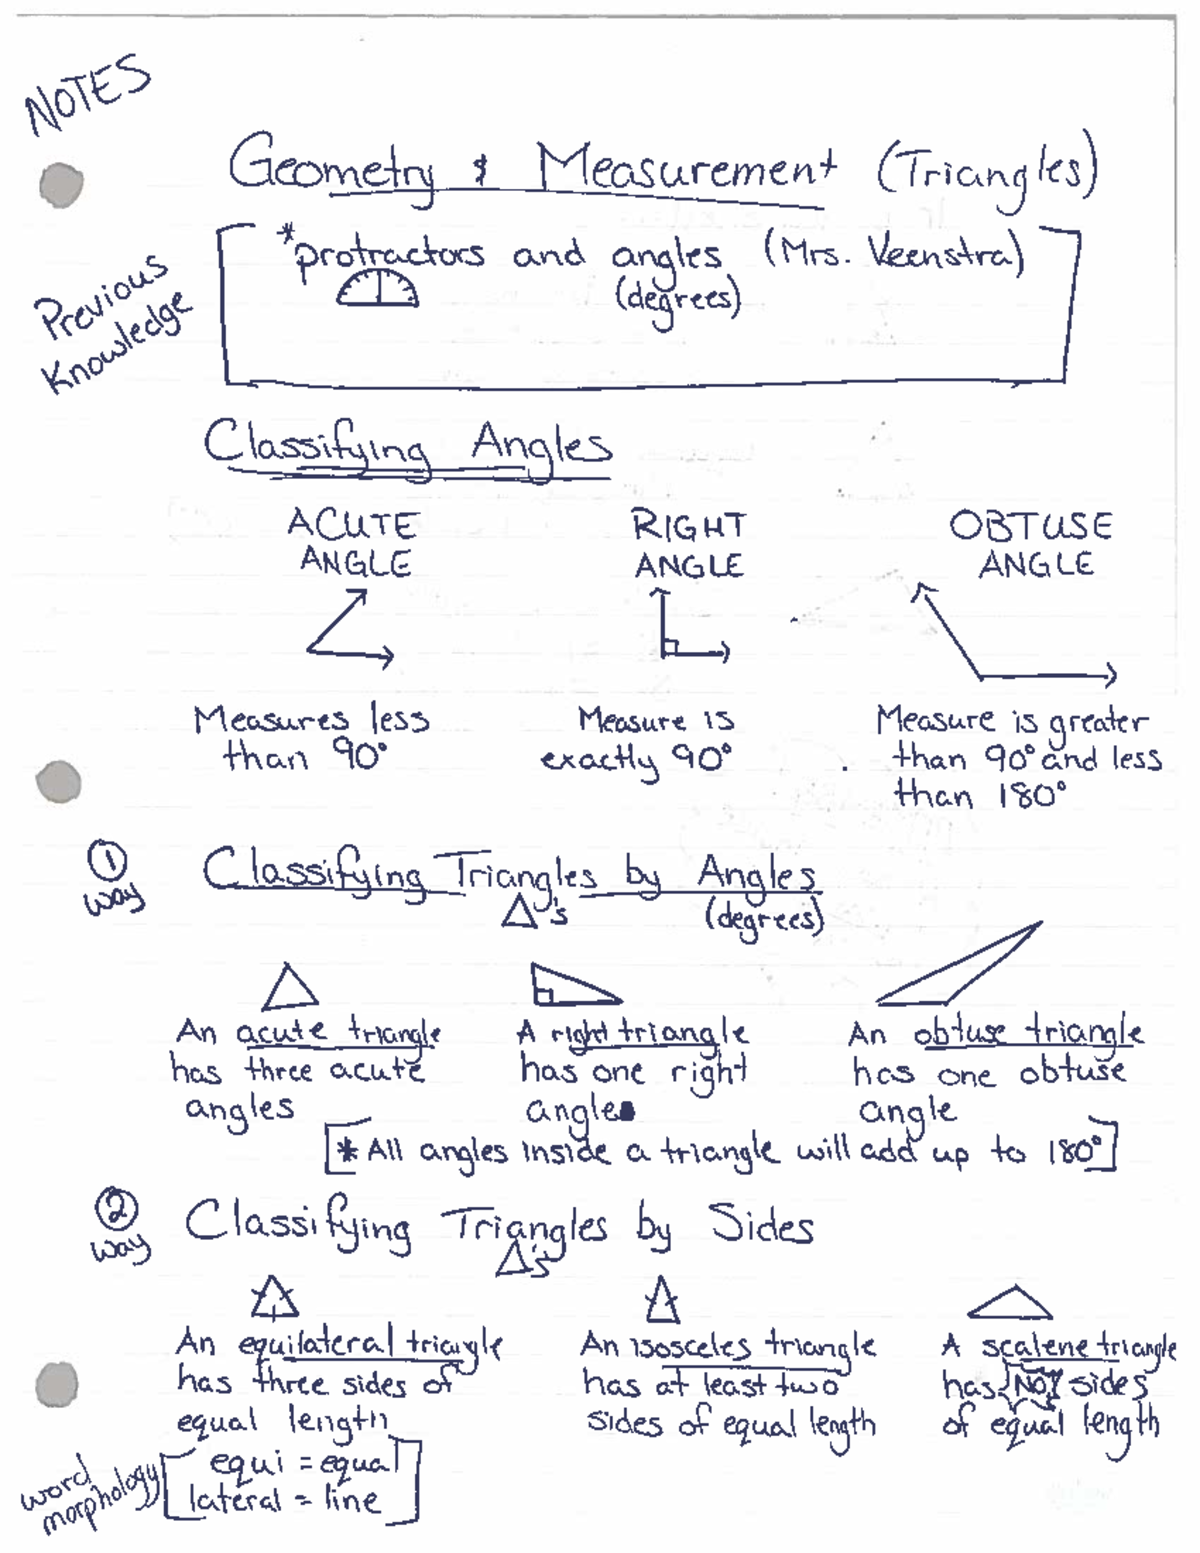 NOTES
Geometry & Measurement (Triangles)
Previous
Knowledge
*protractors and angles (Mrs. Veenstra)
(degrees)
Classifying Angles
ACUTE
ANGLE
RIGHT
ANGLE
OBTUSE
ANGLE
Measures less
than 90°
Measure is
exactly 90°
Measure is greater
than 90° and less
than 180°
① way
Classifying Triangles by Angles
Δ's
(degrees)
An acute triangle
has three acute
angles
A right triangle
has one right
angle
An obtuse triangle
has one obtuse
angle
[* All angles inside a triangle will add up to 180°]
② way
Classifying Triangles by Sides
Δ's
An equilateral triangle
has three sides of
equal length
An isosceles triangle
has at least two
sides of equal length
A scalene triangle
has NO sides
of equal length
word
morphology
equi = equal
lateral = line